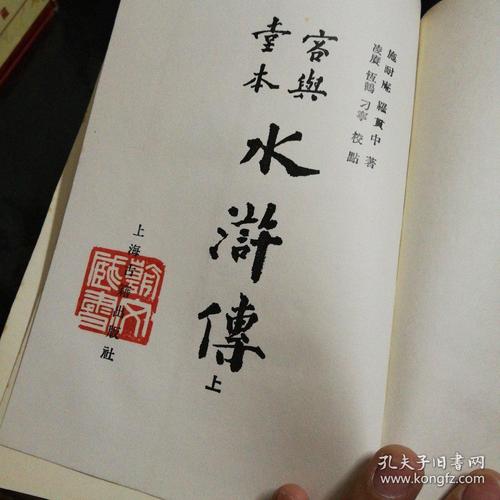 施耐庵 羅貫中 著
凌賡 恆鶴 刁寧 校點
容與
堂本
水滸傳
上
上海古籍出版社
孔夫子旧书网
www.kongfz.com